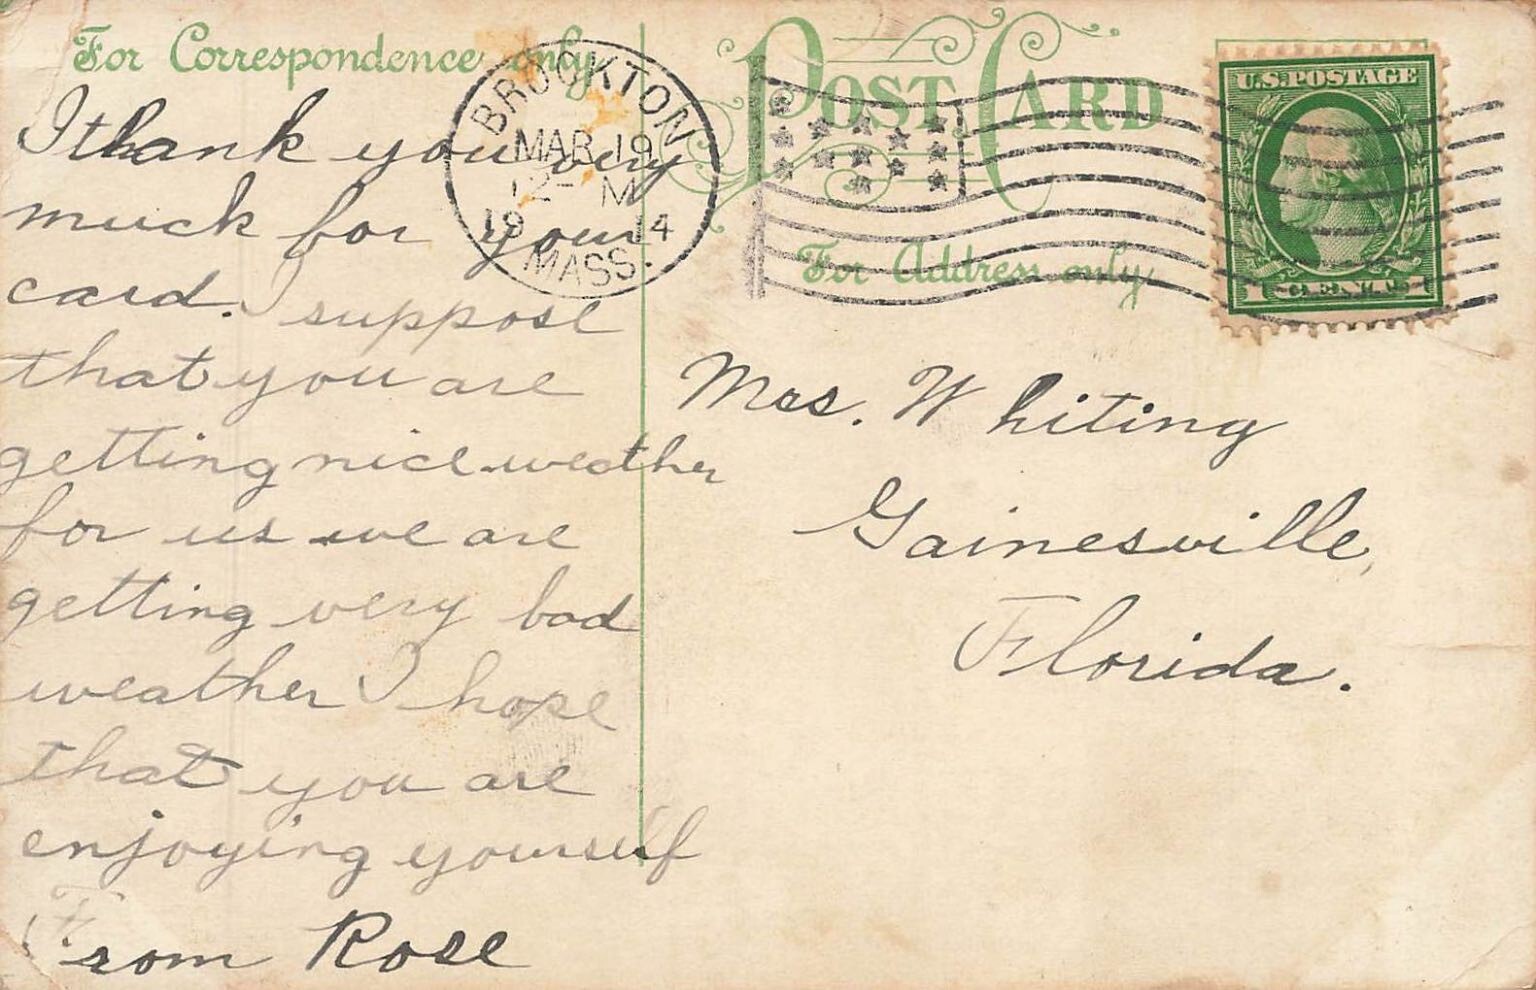 For Correspondence only
I thank you very
much for your
card. I suppose
that you are
getting nice weather
for us we are
getting very bad
weather I hope
that you are
enjoying yourself
From Rose
BROCKTON
MAR 19
12- M
19 14
MASS.
POST CARD
For Address only
U.S. POSTAGE
1 CENT 1
Mrs. Whiting
Gainesville,
Florida.